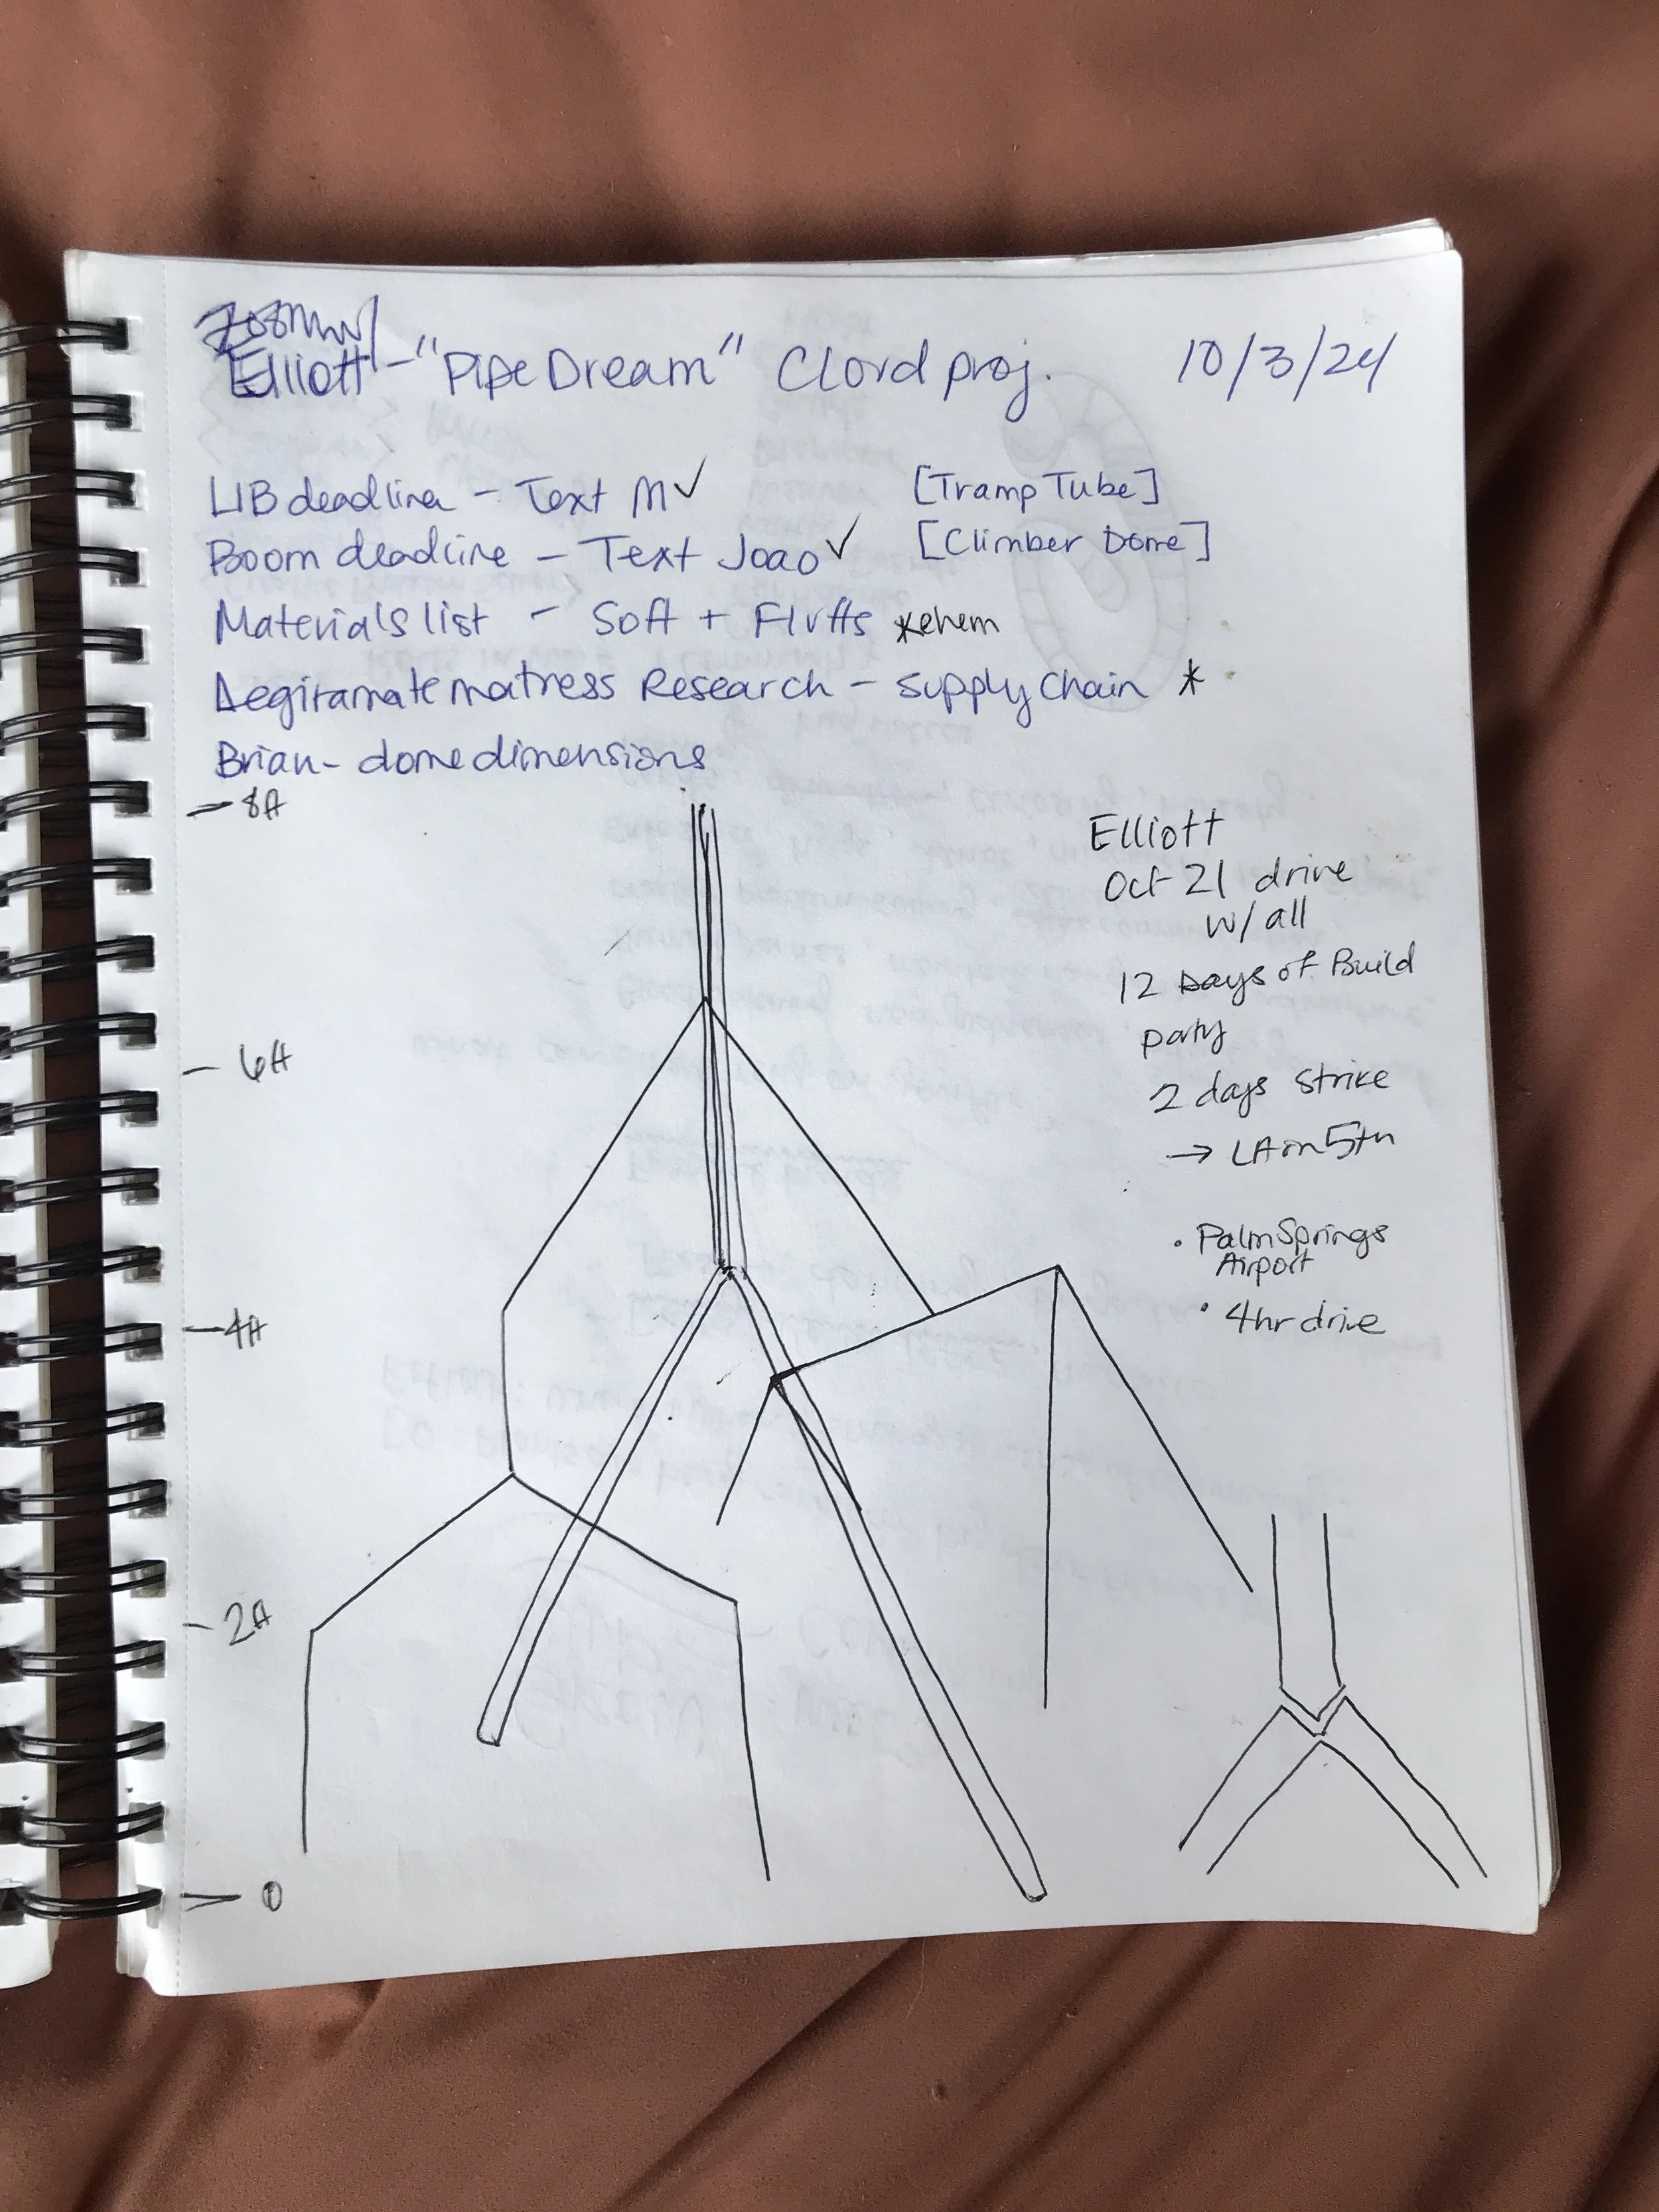 Elliott - "Pipe Dream" Clovd proj. 10/3/24
LIB deadline - Text M✓ [Tramp Tube]
Boom deadline - Text Joao✓ [Climber Dome]
Materials list - Soft + Fluffs *ehem
Aegiramate matress Research - supply chain *
Brian - dome dimensions
- 8ft
Elliott
Oct 21 drive
w/ all
12 Days of Build
party
- 6ft
2 days strike
→ LA on 5th
• Palm Springs
Airport
• 4hr drive
- 4ft
- 2ft
- 0